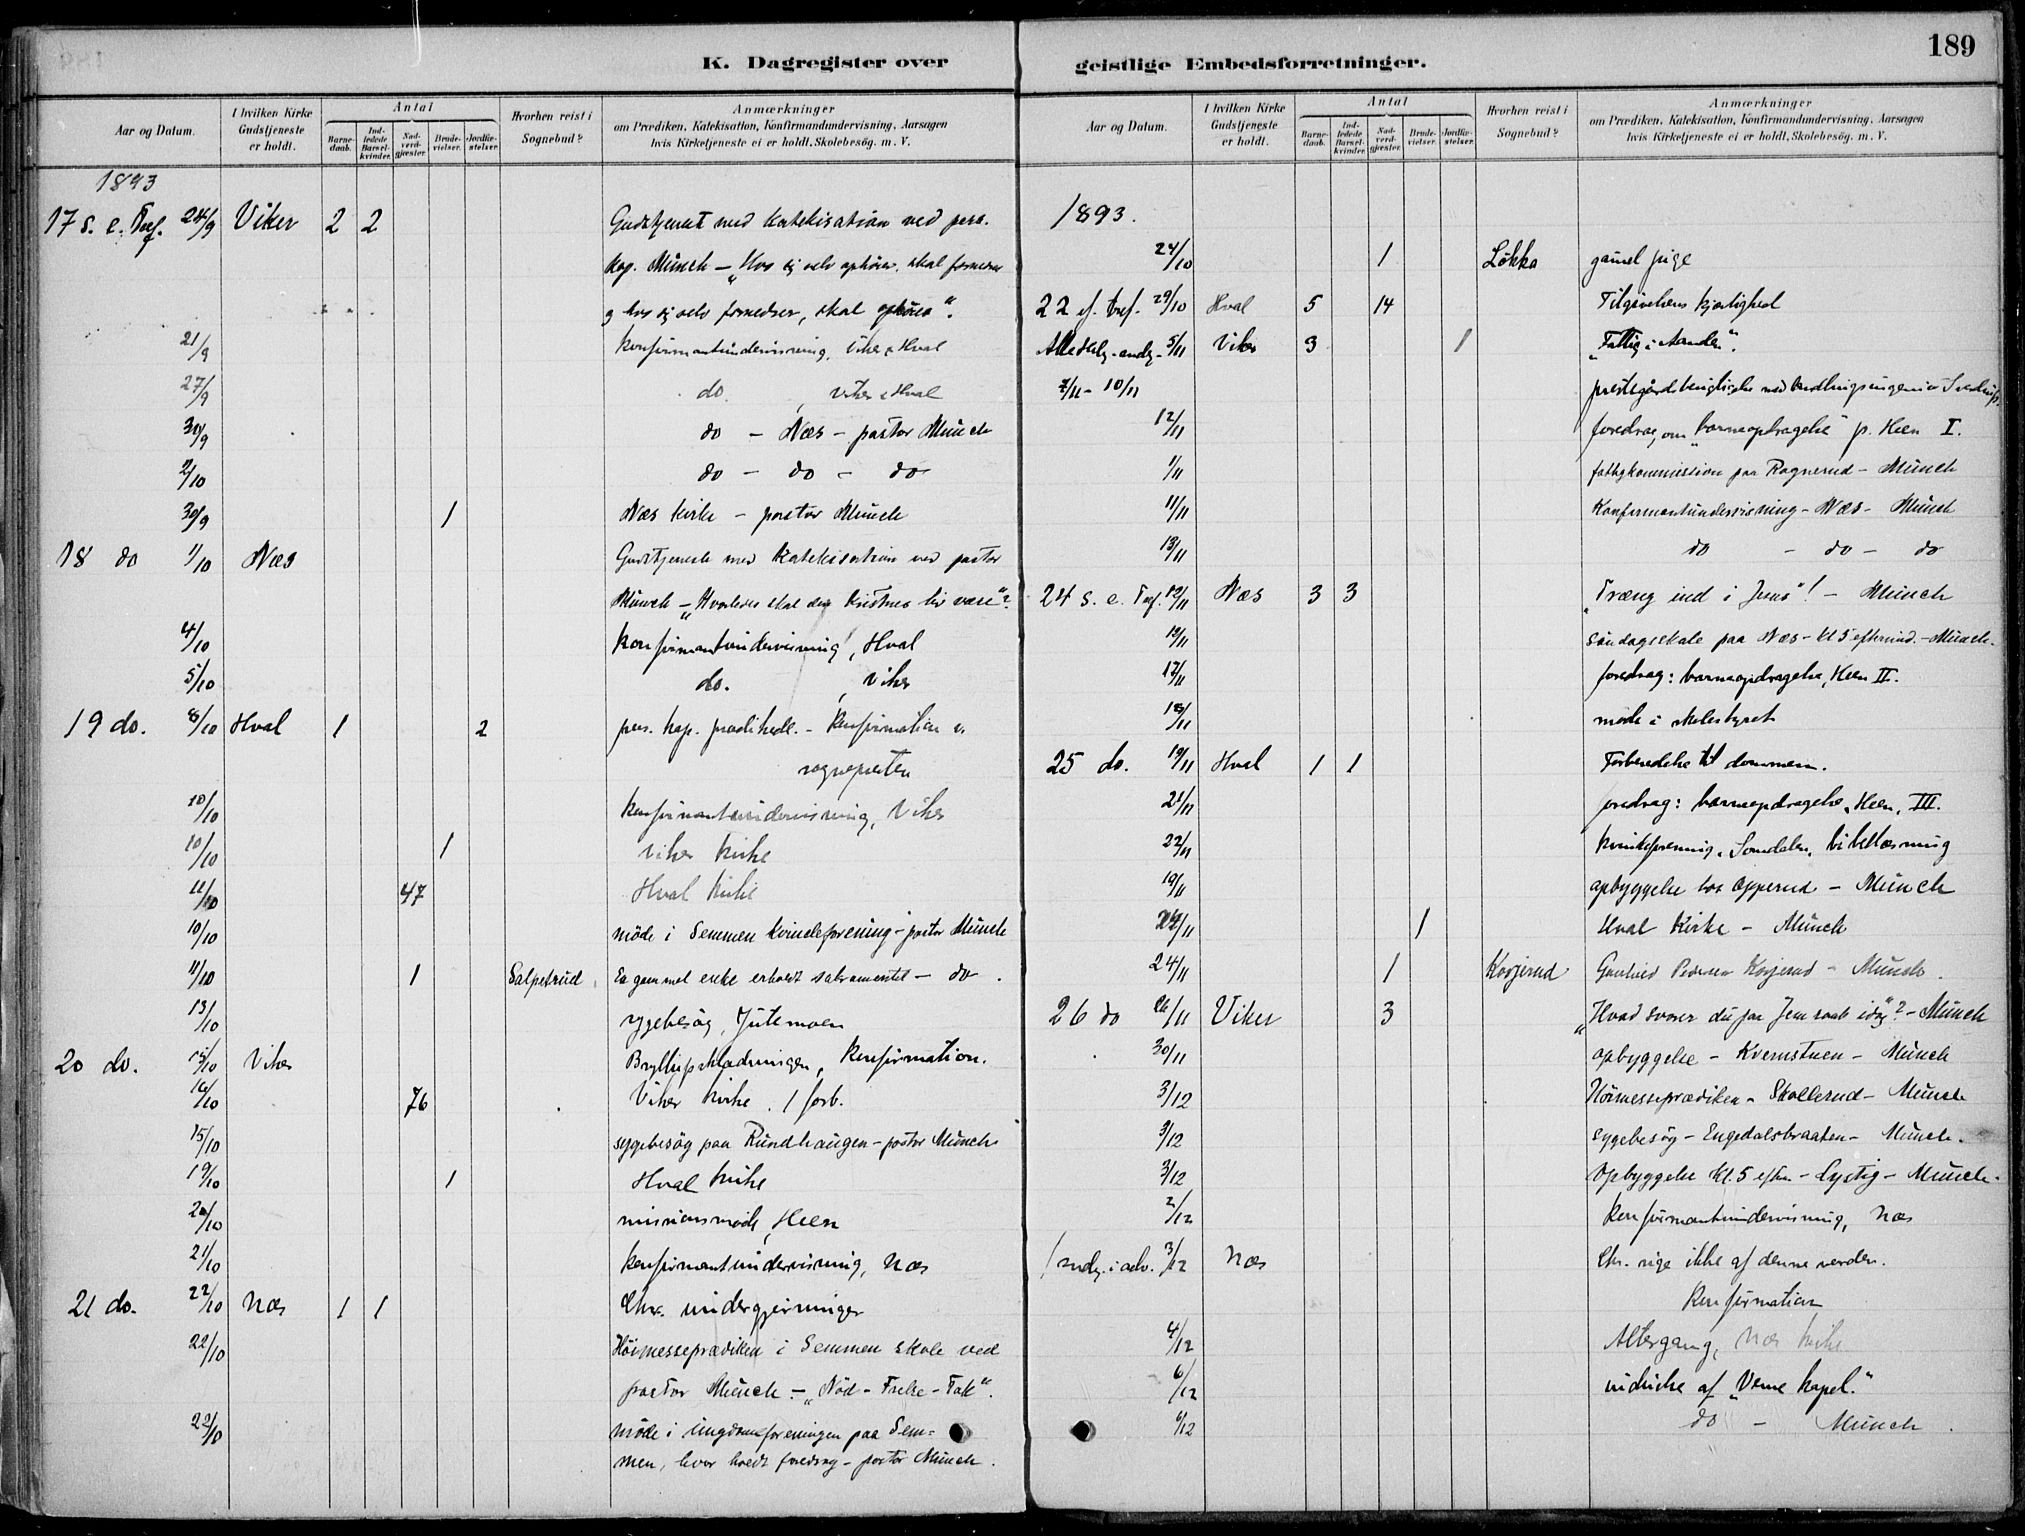 189
K. Dagregister over
Aar og Datum.
I hvilken Kirke Gudstjeneste er holdt.
Antal
Barne-daab.
Ind-ledede Barsel-kvinder.
Nad-verd-gjæster.
Brude-vielser.
Jordfæ-stelser.
Hvorhen reist i Sognebud?
Anmærkninger
om Prædiken, Katekisation, Konfirmandundervisning, Aarsagen
hvis Kirketjeneste ei er holdt, Skolebesög. m. V.
1893
17 s. e. Tref. 24/9 Viker 2 2 Gudstjenest med katekisation ved pers.
kap. Münch – "Hvo sig selv ophöier, skal fornedres
og hvo sig selv fornedrer, skal ophöies".
21/9 konfirmantundervisning, Viker & Hval
27/9 do , Viker & Hval
30/9 do – Næs – pastor Münch
2/10 do – do – do
30/9 1 Næs kirke – pastor Münch
18 do 1/10 Næs Gudstjeneste med katekisation ved pastor
Münch – "Hvorledes skal den kristnes liv være"?
4/10 konfirmantundervisning, Hval
5/10 do. , Viker
19 do. 8/10 Hval 1 2 pers. kap. prædikede. – Konfirmation v.
sognepresten
10/10 konfirmantundervisning, Viker
10/10 1 Viker kirke
11/10 47 Hval kirke
10/10 möde i Semmen kvindeforening – pastor Münch
11/10 1 Salpetrud En gammel enke erholdt sakramentet – do.
13/10 sygebesög, Jütemoen
20 do. 15/10 Viker Bryllupsklædningen, Konfirmation.
16/10 76 Viker kirke. 1 forb.
15/10 sygebesög paa Rundhaugen – pastor Münch
19/10 1 Hval kirke
20/10 missionsmöde, Heen
21/10 konfirmantundervisning, Næs
21 do. 22/10 Næs 1 1 Chr. undergjerninger
22/10 Höimesseprædiken i Semmen skole ved
pastor Münch – "Nöd – Frelse – Tak".
22/10 möde i Ungdomsforeningen paa Sem=
men, hvor holdt foredrag – pastor Münch.
geistlige Embedsforretninger.
Aar og Datum.
I hvilken Kirke Gudstjeneste er holdt.
Antal
Barne-daab.
Ind-ledede Barsel-kvinder.
Nad-verd-gjæster.
Brude-vielser.
Jordfæ-stelser.
Hvorhen reist i Sognebud?
Anmærkninger
om Prædiken, Katekisation, Konfirmandundervisning, Aarsagen
hvis Kirketjeneste ei er holdt, Skolebesög. m. V.
1893.
24/10 1 Lökka gamel pige
22 ef. tref. 29/10 Hval 5 14 Tilgivelsens kjærlighed
Allehelg. sndg. 5/11 Viker 3 1 "Fattig i Aanden".
7/11 – 10/11
12/11 foredrag om "barneopdragelse" p. Heen I.
1/11 fattigkommission paa Ragnerud – Münch
11/11 Konfirmantundervisning – Næs – Münch
13/11 do – do – do
24 s. e. Tref. 12/11 Næs 3 3 "Træng ind i Jesus"! – Münch
12/11 Söndagsskole paa Næs – kl 5 eftermid. – Münch.
17/11 foredrag: barneopdragelse, Heen II.
18/11 möde i skolestyret
25 do. 19/11 Hval 1 1 Forberedelse til dommen.
21/11 foredrag: barneopdragelse, Heen, III.
22/11 kvindeforening, Somdalen, bibellæsning
19/11 opbyggelse hos Opperud – Münch
24/11 1 Hval Kirke – Münch
24/11 1 Korjerud Pedersen Korjerud – Münch.
26 do 26/11 Viker 3 "Hvad svarer du paa Jesu raab idag"? – Münch
30/11 opbyggelse – Kvernstuen – Münch
3/12 Höimesseprædiken – Skollerud – Münch
3/12 sygebesög – Engedalsbraaten – Münch.
3/12 Opbyggelse kl. 5 efterm – Lystig – Münch.
2/12 konfirmantundervisning, Næs
1 sndg. i adv. 3/12 Næs Chr. rige ikke af denne verden.
Konfirmation
4/12 Altergang, Næs kirke
6/12 indvielse af "Veme kapel."
6/12 do – Münch.